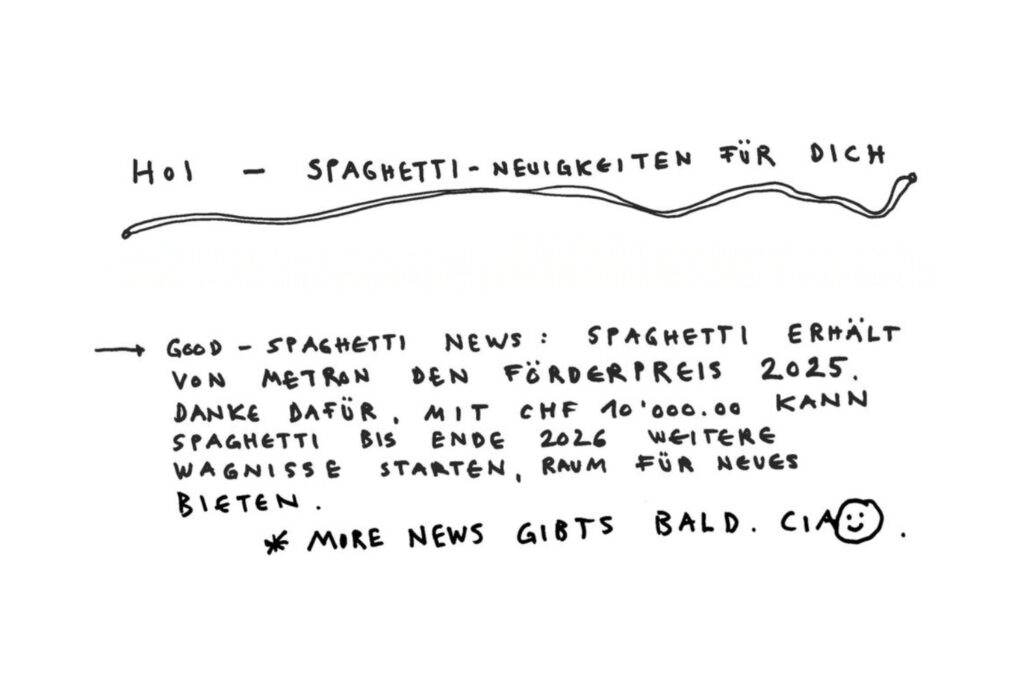 HOI – SPAGHETTI-NEUIGKEITEN FÜR DICH
→ GOOD – SPAGHETTI NEWS: SPAGHETTI ERHÄLT
VON METRON DEN FÖRDERPREIS 2025.
DANKE DAFÜR, MIT CHF 10'000.00 KANN
SPAGHETTI BIS ENDE 2026 WEITERE
WAGNISSE STARTEN, RAUM FÜR NEUES
BIETEN.
* MORE NEWS GIBTS BALD. CIA☺.